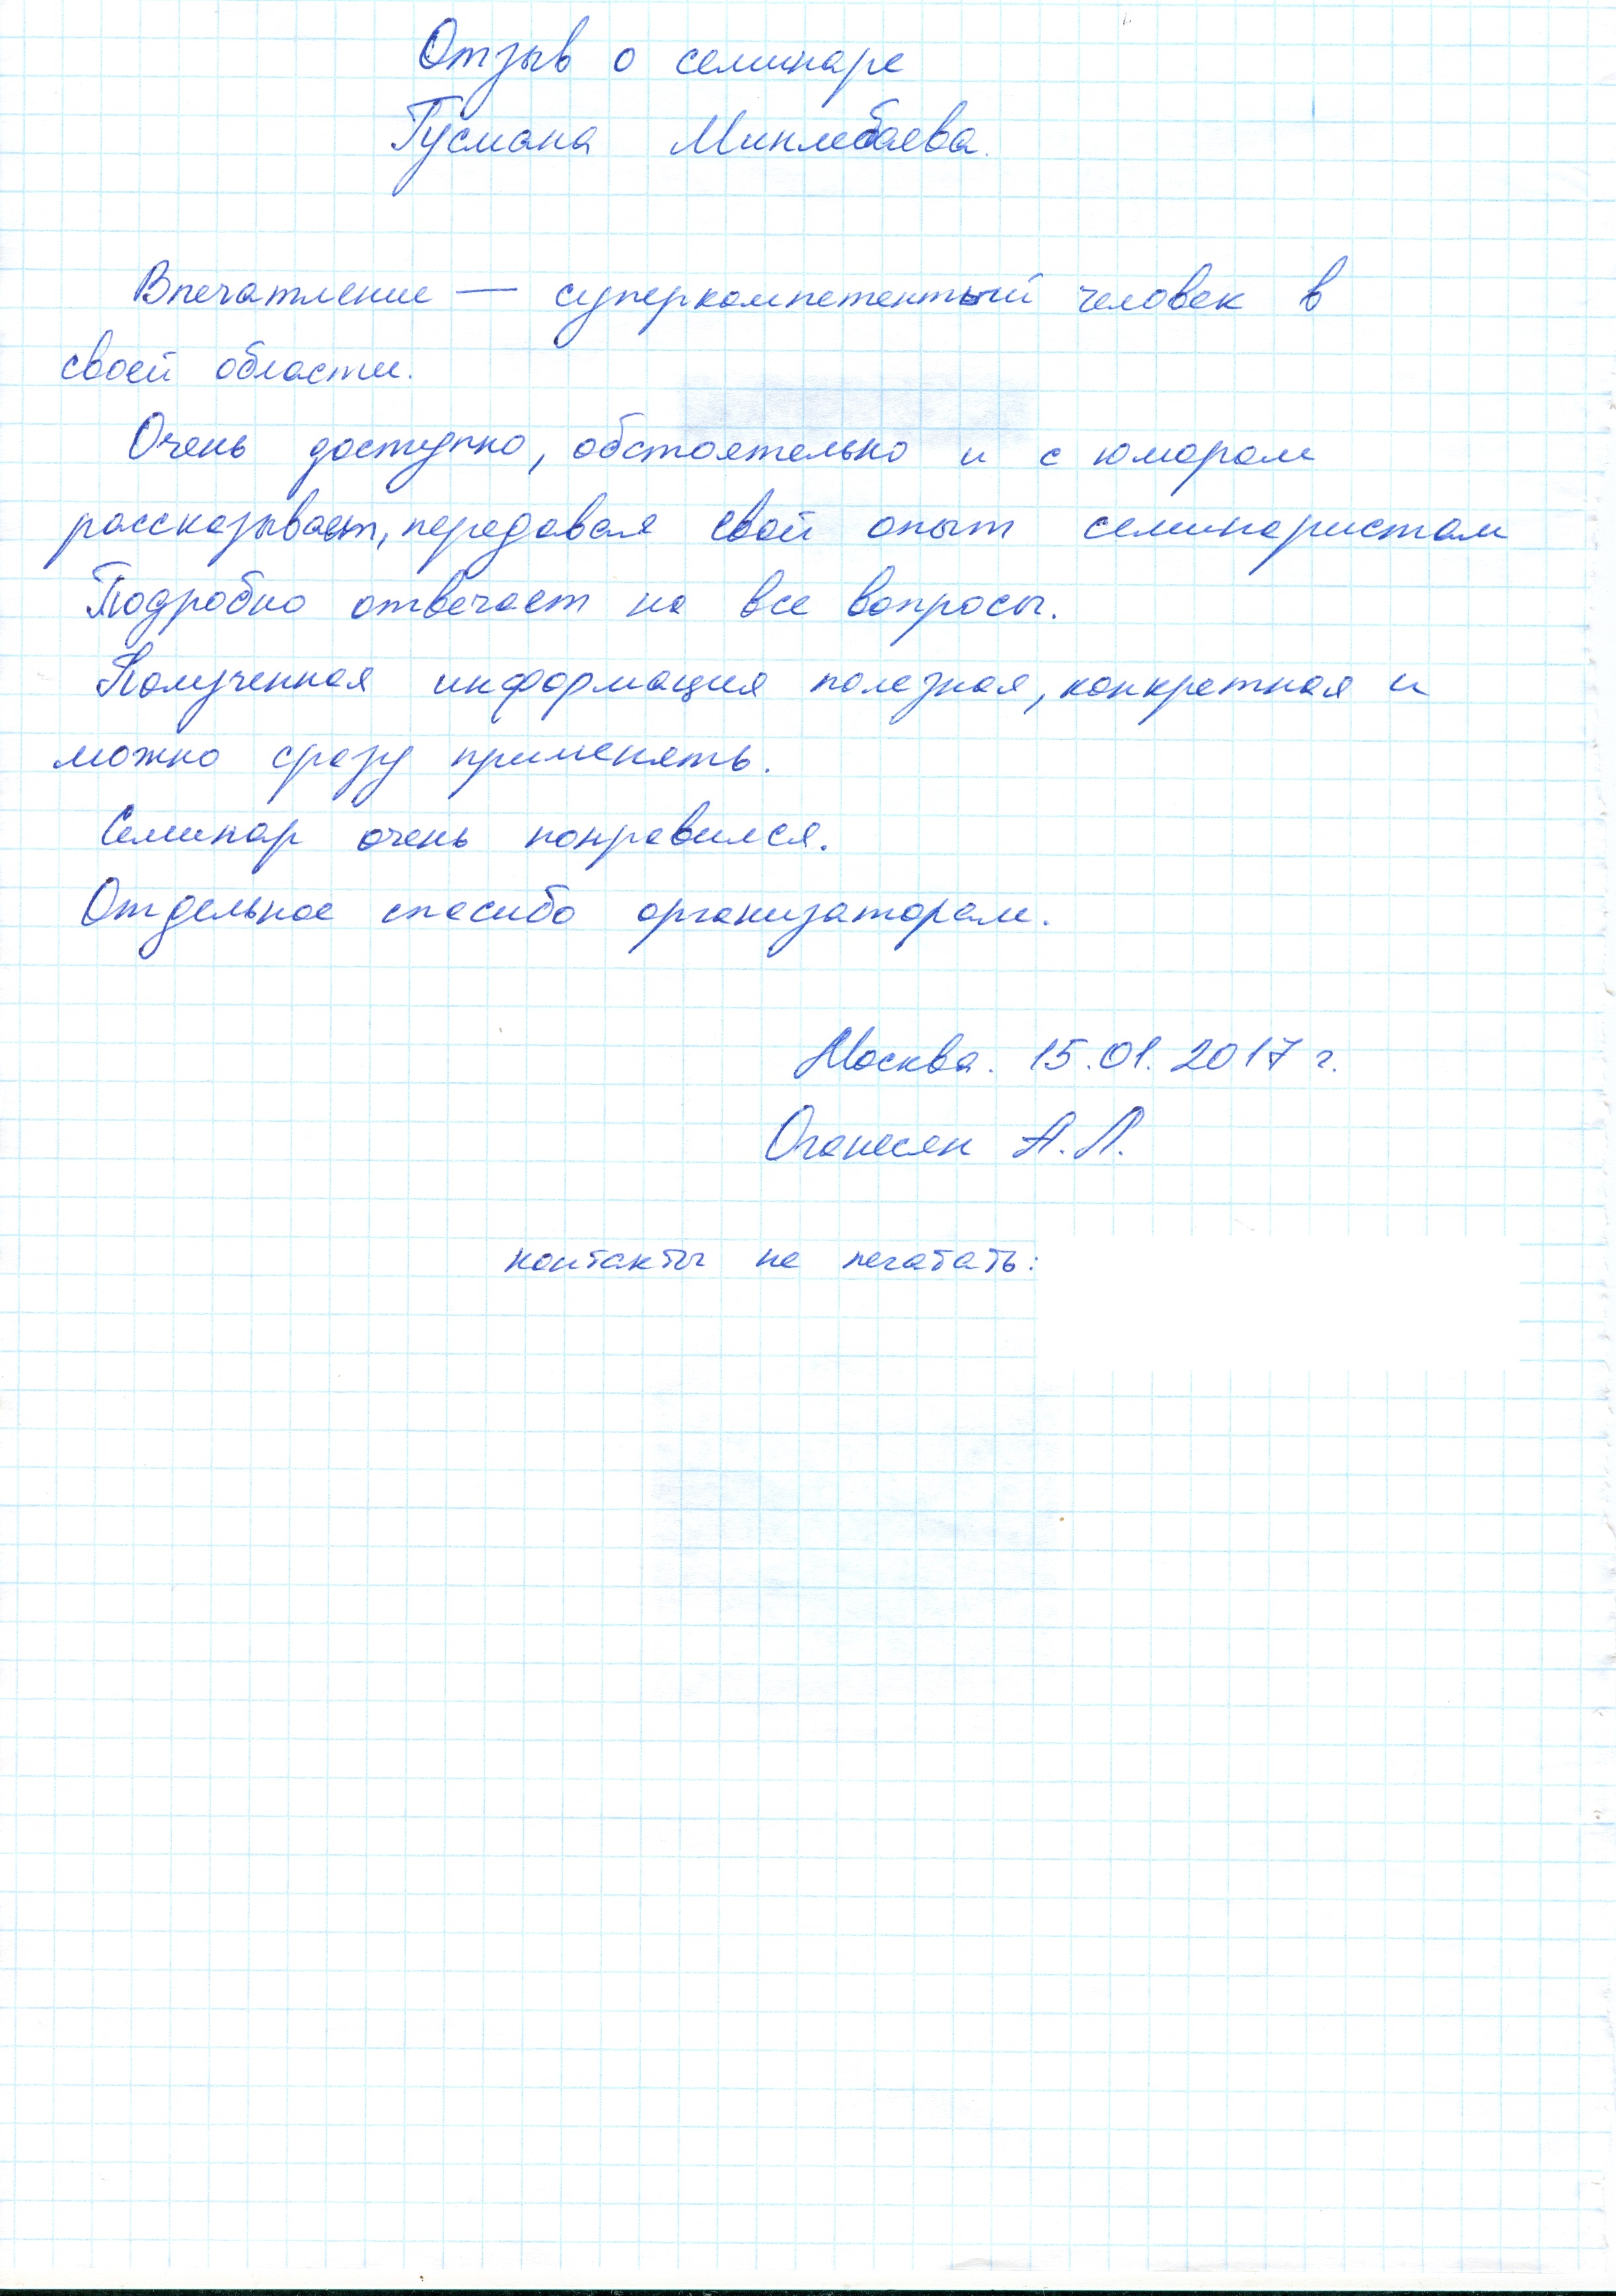 Отзыв о семинаре
Гусмана Минлебаева.
Впечатление — суперкомпетентный человек в
своей области.
Очень доступно, обстоятельно и с юмором
рассказывает, передавая свой опыт семинаристам
Подробно отвечает на все вопросы.
Полученная информация полезная, конкретная и
можно сразу применять.
Семинар очень понравился.
Отдельное спасибо организаторам.
Москва. 15.01.2017 г.
Оганесян А.Л.
контакты не печатать: